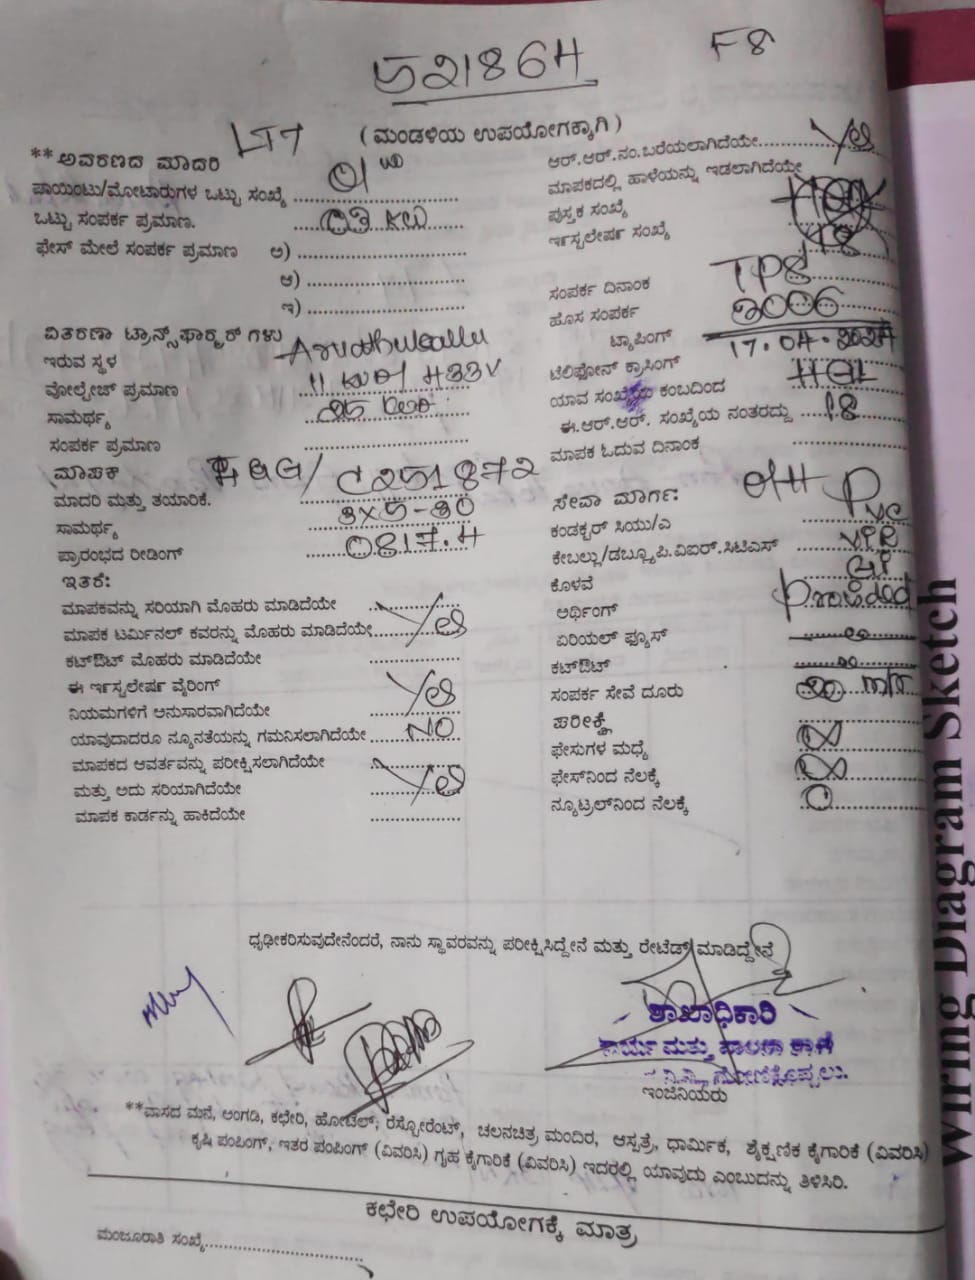 521864
F8
(ಮಂಡಳಿಯ ಉಪಯೋಗಕ್ಕಾಗಿ)
**ಅವರಣದ ಮಾದರಿ LT7
ಪಾಯಿಂಟು/ಮೋಟಾರುಗಳ ಒಟ್ಟು ಸಂಖ್ಯೆ 01
ಒಟ್ಟು ಸಂಪರ್ಕ ಪ್ರಮಾಣ. 03 KW
ಫೇಸ್ ಮೇಲೆ ಸಂಪರ್ಕ ಪ್ರಮಾಣ ಅ)
ಆ)
ಇ)
ವಿತರಣಾ ಟ್ರಾನ್ಸ್‌ಫಾರ್ಮರ್ ಗಳು
ಇರುವ ಸ್ಥಳ
ವೋಲ್ಟೇಜ್ ಪ್ರಮಾಣ 433V
ಸಾಮರ್ಥ್ಯ 25
ಸಂಪರ್ಕ ಪ್ರಮಾಣ
ಮಾಪಕ
ಮಾದರಿ ಮತ್ತು ತಯಾರಿಕೆ. C251872
ಸಾಮರ್ಥ್ಯ 3X5-30
ಪ್ರಾರಂಭದ ರೀಡಿಂಗ್ 0817.4
ಇತರೆ:
ಮಾಪಕವನ್ನು ಸರಿಯಾಗಿ ಮೊಹರು ಮಾಡಿದೆಯೇ
ಮಾಪಕ ಟರ್ಮಿನಲ್ ಕವರನ್ನು ಮೊಹರು ಮಾಡಿದೆಯೇ Yes
ಕಟ್‌ಔಟ್ ಮೊಹರು ಮಾಡಿದೆಯೇ
ಈ ಇನ್‌ಸ್ಟಲೇಷನ್ ವೈರಿಂಗ್
ನಿಯಮಗಳಿಗೆ ಅನುಸಾರವಾಗಿದೆಯೇ Yes
ಯಾವುದಾದರೂ ನ್ಯೂನತೆಯನ್ನು ಗಮನಿಸಲಾಗಿದೆಯೇ NO
ಮಾಪಕದ ಆವರ್ತವನ್ನು ಪರೀಕ್ಷಿಸಲಾಗಿದೆಯೇ
ಮತ್ತು ಅದು ಸರಿಯಾಗಿದೆಯೇ Yes
ಮಾಪಕ ಕಾರ್ಡನ್ನು ಹಾಕಿದೆಯೇ
ಆರ್.ಆರ್.ನಂ.ಬರೆಯಲಾಗಿದೆಯೇ Yes
ಮಾಪಕದಲ್ಲಿ ಹಾಳೆಯನ್ನು ಇಡಲಾಗಿದೆಯೇ
ಪುಸ್ತಕ ಸಂಖ್ಯೆ
ಇನ್‌ಸ್ಟಲೇಷನ್ ಸಂಖ್ಯೆ
ಸಂಪರ್ಕ ದಿನಾಂಕ TPS
ಹೊಸ ಸಂಪರ್ಕ 2006
ಟ್ಯಾಪಿಂಗ್ 17.04.2024
ಟೆಲಿಫೋನ್ ಕ್ರಾಸಿಂಗ್
ಯಾವ ಸಂಖ್ಯೆಯ ಕಂಬದಿಂದ
ಈ.ಆರ್.ಆರ್. ಸಂಖ್ಯೆಯ ನಂತರದ್ದು 18
ಮಾಪಕ ಓದುವ ದಿನಾಂಕ
ಸೇವಾ ಮಾರ್ಗ: OHH
ಕಂಡಕ್ಟರ್ ಸಿಯು/ಎ PVC
ಕೇಬಲ್ಲು/ಡಬ್ಲ್ಯೂ.ಪಿ.ವಿಐಆರ್.ಸಿಟಿಎಸ್ VPR
ಕೊಳವೆ GI
ಅರ್ಥಿಂಗ್ Provided
ಏರಿಯಲ್ ಫ್ಯೂಸ್
ಕಟ್‌ಔಟ್
ಸಂಪರ್ಕ ಸೇವೆ ದೂರು 20 mtr
ಪರೀಕ್ಷೆ
ಫೇಸುಗಳ ಮಧ್ಯೆ ∞
ಫೇಸ್‌ನಿಂದ ನೆಲಕ್ಕೆ ∞
ನ್ಯೂಟ್ರಲ್‌ನಿಂದ ನೆಲಕ್ಕೆ 0
ಧೃಢೀಕರಿಸುವುದೇನೆಂದರೆ, ನಾನು ಸ್ಥಾವರವನ್ನು ಪರೀಕ್ಷಿಸಿದ್ದೇನೆ ಮತ್ತು ರೇಟೆಡ್ ಮಾಡಿದ್ದೇನೆ
ಶಾಖಾಧಿಕಾರಿ
ಕಾರ್ಯ ಮತ್ತು ಪಾಲನಾ ಶಾಖೆ
ಇಂಜಿನಿಯರು
**ವಾಸದ ಮನೆ, ಅಂಗಡಿ, ಕಛೇರಿ, ಹೋಟೆಲ್, ರೆಸ್ಟೋರೆಂಟ್, ಚಲನಚಿತ್ರ ಮಂದಿರ, ಆಸ್ಪತ್ರೆ, ಧಾರ್ಮಿಕ, ಶೈಕ್ಷಣಿಕ ಕೈಗಾರಿಕೆ (ವಿವರಿಸಿ)
ಕೃಷಿ ಪಂಪಿಂಗ್, ಇತರ ಪಂಪಿಂಗ್ (ವಿವರಿಸಿ) ಗೃಹ ಕೈಗಾರಿಕೆ (ವಿವರಿಸಿ) ಇದರಲ್ಲಿ ಯಾವುದು ಎಂಬುದನ್ನು ತಿಳಿಸಿರಿ.
ಕಛೇರಿ ಉಪಯೋಗಕ್ಕೆ ಮಾತ್ರ
ಮಂಜೂರಾತಿ ಸಂಖ್ಯೆ
Wiring Diagram Sketch